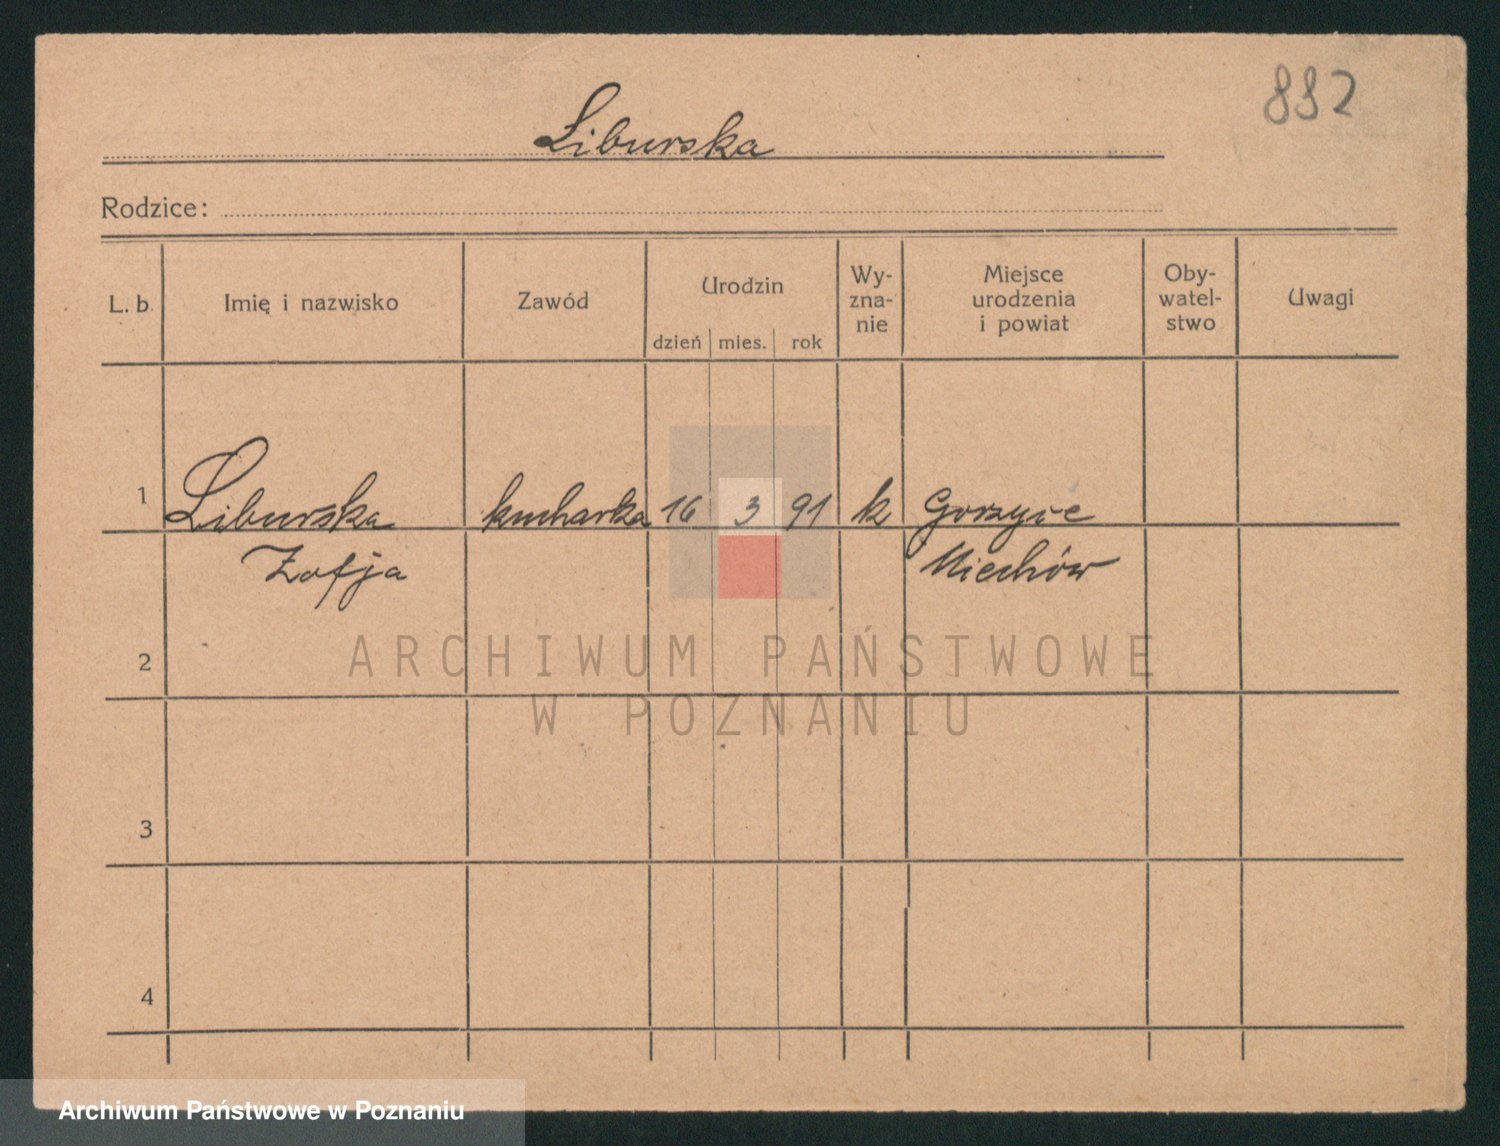 832
Liburska
Rodzice:
L. b. Imię i nazwisko Zawód Urodzin dzień mies. rok Wy-zna-nie Miejsce urodzenia i powiat Oby-watel-stwo Uwagi
1 Liburska kucharka 16 3 91 k Gorzyce
Zofja Miechów
2
ARCHIWUM PAŃSTWOWE
W POZNANIU
3
4
Archiwum Państwowe w Poznaniu